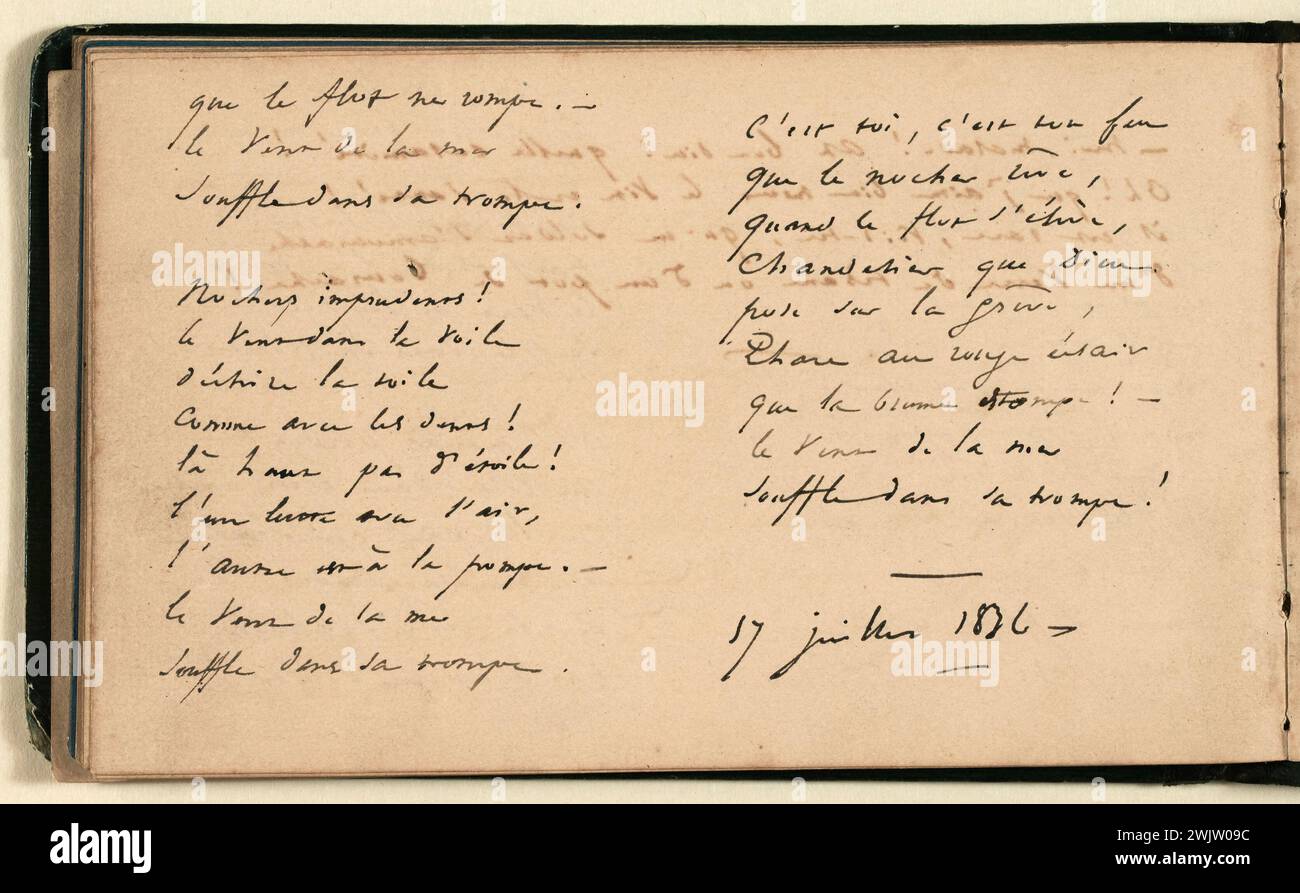 que le flot ne rompe. —
le vent de la mer
souffle dans sa trompe.
Nochers imprudents !
le vent dans la voile
déchire la toile
comme avec les dents !
là haut pas d'étoile !
l'un lutte avec l'air,
l'autre est à la pompe. —
le vent de la mer
souffle dans sa trompe.
c'est toi, c'est ton feu
que le nocher rêve,
quand le flot s'élève,
Chandelier que Dieu
pose sur la grève,
Phare au rouge éclair
que la brume estompe ! —
le vent de la mer
souffle dans sa trompe !
17 juillet 1836 —
alamy
alamy
Image ID: 2WJW09C
www.alamy.com